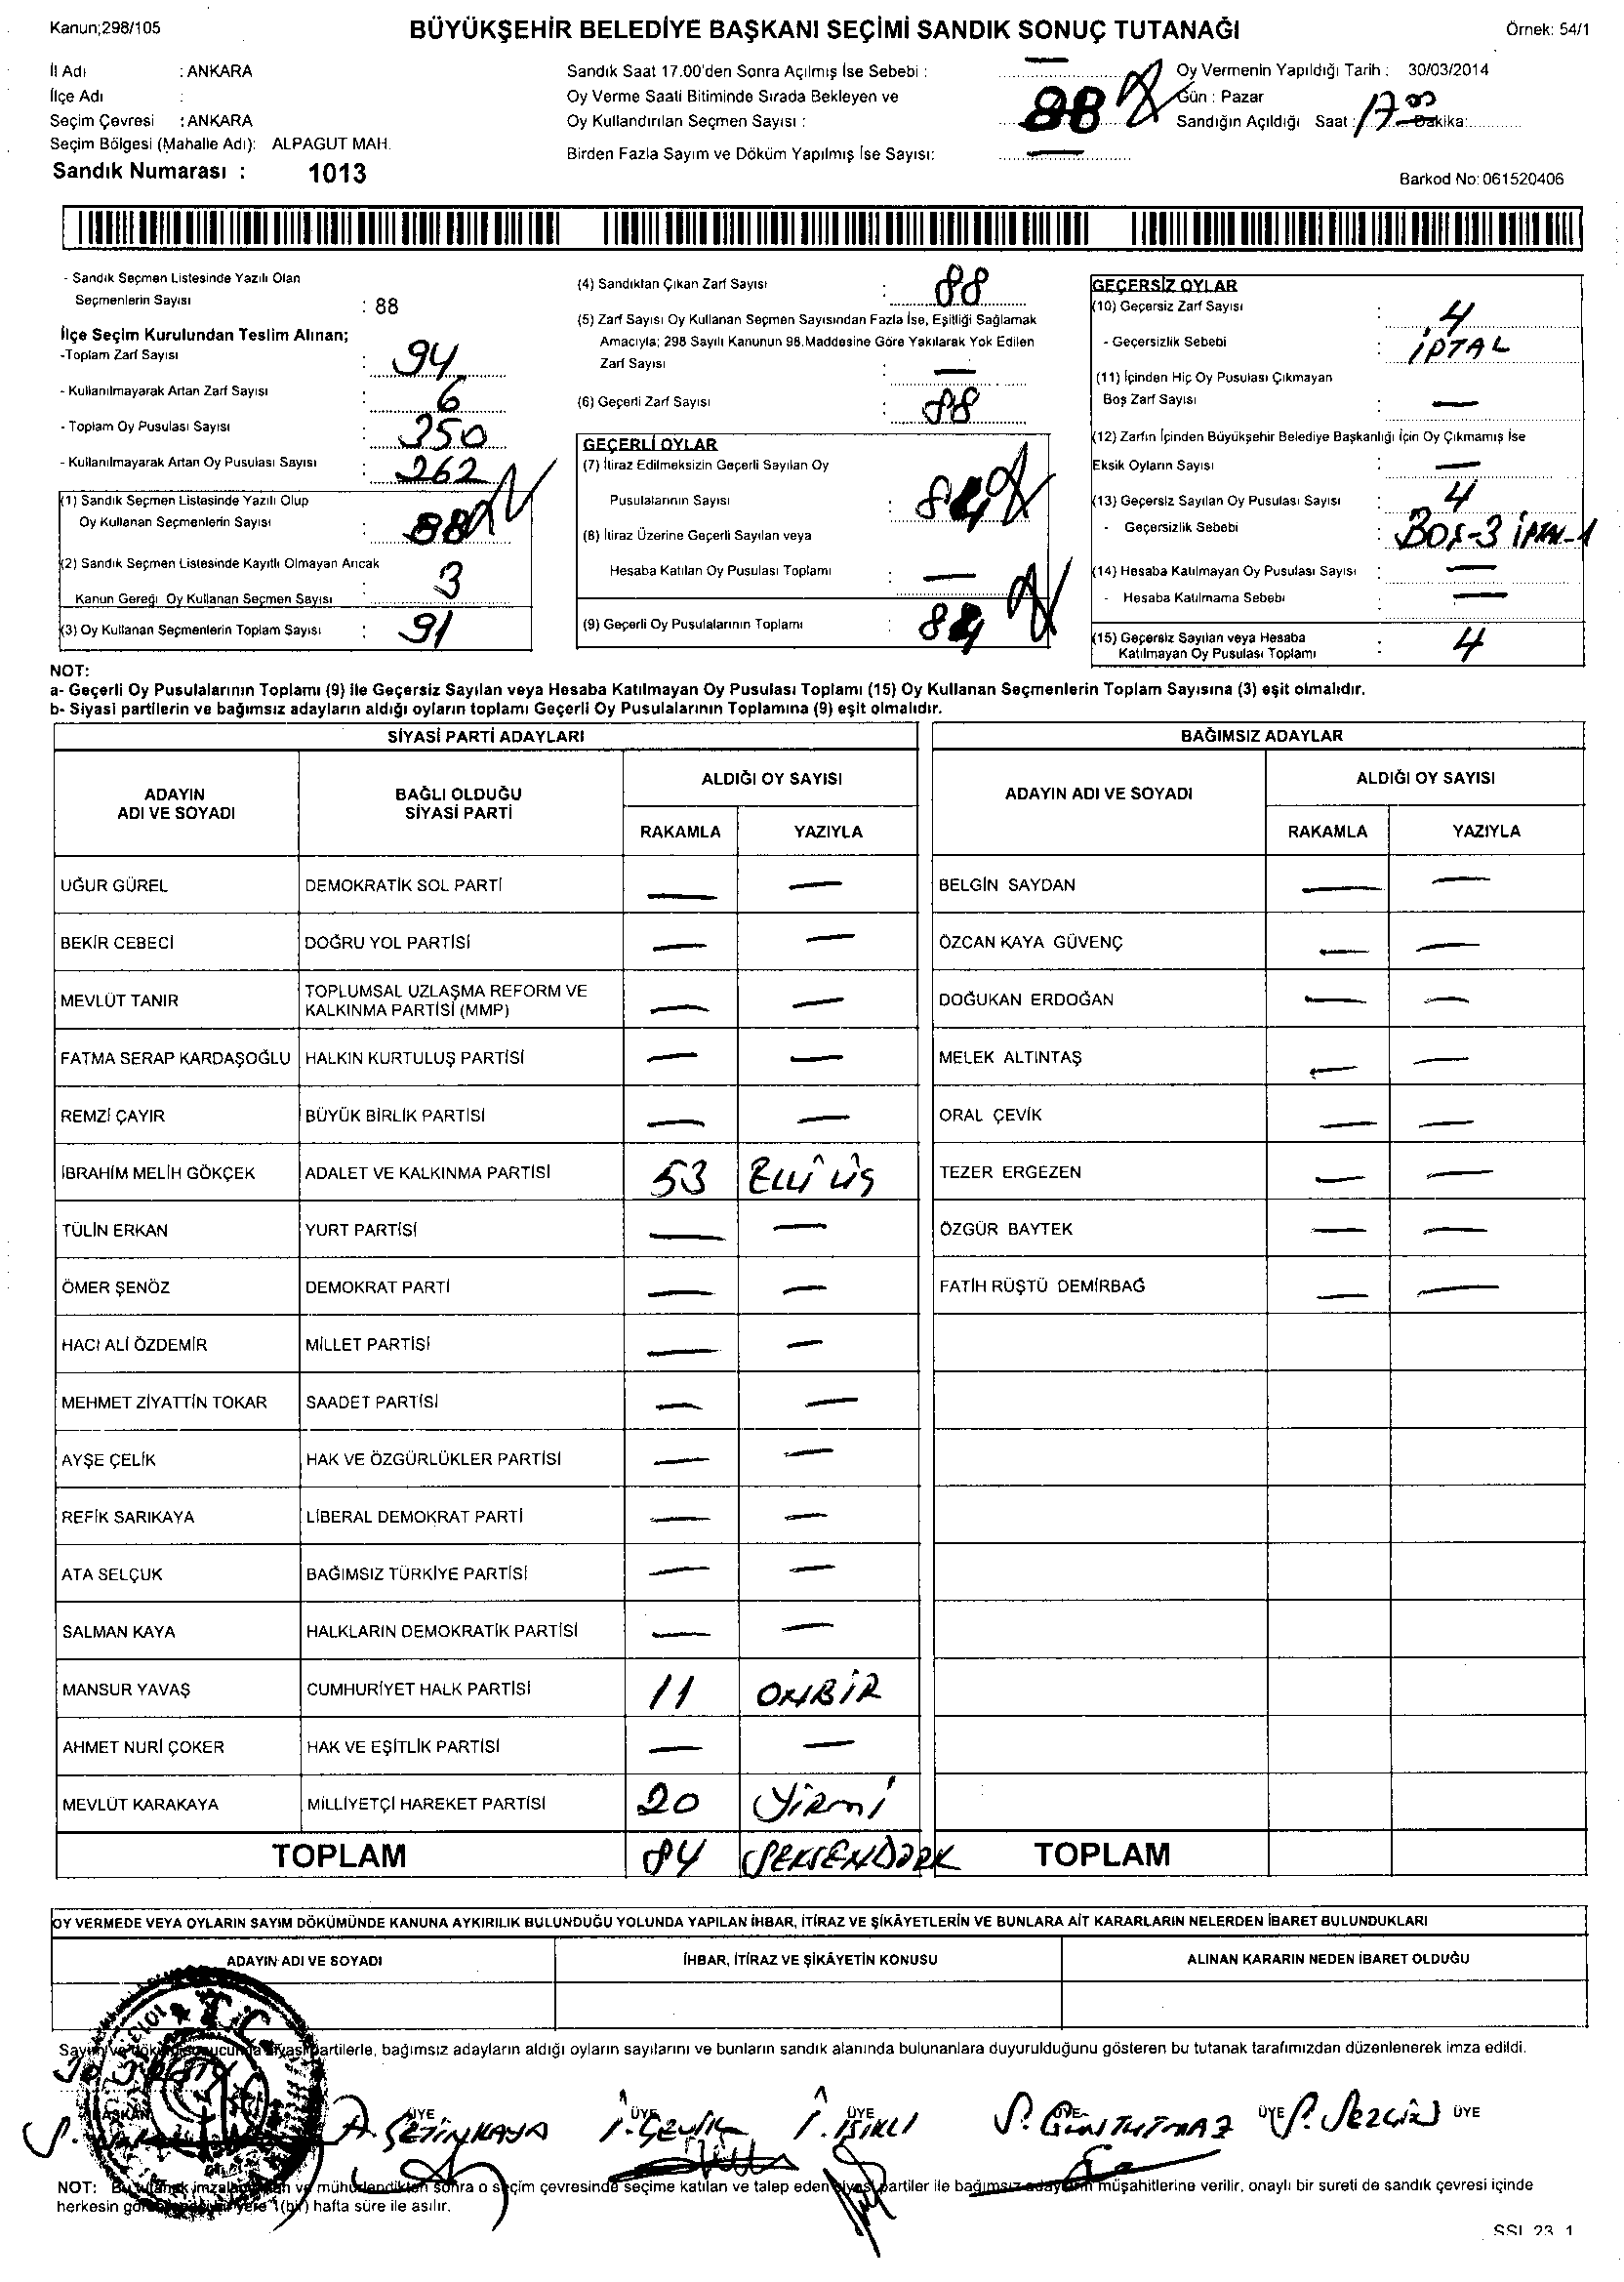 Kanun;298/105
BÜYÜKŞEHİR BELEDİYE BAŞKANI SEÇİMİ SANDIK SONUÇ TUTANAĞI
Örnek: 54/1
İl Adı : ANKARA
İlçe Adı :
Seçim Çevresi : ANKARA
Seçim Bölgesi (Mahalle Adı): ALPAGUT MAH.
Sandık Numarası : 1013
Sandık Saat 17.00'den Sonra Açılmış İse Sebebi : —
Oy Verme Saati Bitiminde Sırada Bekleyen ve
Oy Kullandırılan Seçmen Sayısı : 88
Birden Fazla Sayım ve Döküm Yapılmış İse Sayısı: —
Oy Vermenin Yapıldığı Tarih : 30/03/2014
Gün : Pazar
Sandığın Açıldığı Saat : 17 00 Dakika:
Barkod No: 061520406
- Sandık Seçmen Listesinde Yazılı Olan
Seçmenlerin Sayısı : 88
İlçe Seçim Kurulundan Teslim Alınan;
-Toplam Zarf Sayısı : 94
- Kullanılmayarak Artan Zarf Sayısı : 6
- Toplam Oy Pusulası Sayısı : 350
- Kullanılmayarak Artan Oy Pusulası Sayısı : 262
(1) Sandık Seçmen Listesinde Yazılı Olup
Oy Kullanan Seçmenlerin Sayısı : 88
(2) Sandık Seçmen Listesinde Kayıtlı Olmayan Ancak
Kanun Gereği Oy Kullanan Seçmen Sayısı : 3
(3) Oy Kullanan Seçmenlerin Toplam Sayısı : 91
(4) Sandıktan Çıkan Zarf Sayısı : 88
(5) Zarf Sayısı Oy Kullanan Seçmen Sayısından Fazla İse, Eşitliği Sağlamak
Amacıyla; 298 Sayılı Kanunun 98.Maddesine Göre Yakılarak Yok Edilen
Zarf Sayısı : —
(6) Geçerli Zarf Sayısı : 88
GEÇERLİ OYLAR
(7) İtiraz Edilmeksizin Geçerli Sayılan Oy
Pusulalarının Sayısı : 84
(8) İtiraz Üzerine Geçerli Sayılan veya
Hesaba Katılan Oy Pusulası Toplamı : —
(9) Geçerli Oy Pusulalarının Toplamı : 84
GEÇERSİZ OYLAR
(10) Geçersiz Zarf Sayısı : 4
- Geçersizlik Sebebi : İPTAL
(11) İçinden Hiç Oy Pusulası Çıkmayan
Boş Zarf Sayısı : —
(12) Zarfın İçinden Büyükşehir Belediye Başkanlığı İçin Oy Çıkmamış İse
Eksik Oyların Sayısı : —
(13) Geçersiz Sayılan Oy Pusulası Sayısı : 4
- Geçersizlik Sebebi : BOŞ-3 İPTAL-1
(14) Hesaba Katılmayan Oy Pusulası Sayısı : —
- Hesaba Katılmama Sebebi —
(15) Geçersiz Sayılan veya Hesaba
Katılmayan Oy Pusulası Toplamı : 4
NOT:
a- Geçerli Oy Pusulalarının Toplamı (9) ile Geçersiz Sayılan veya Hesaba Katılmayan Oy Pusulası Toplamı (15) Oy Kullanan Seçmenlerin Toplam Sayısına (3) eşit olmalıdır.
b- Siyasi partilerin ve bağımsız adayların aldığı oyların toplamı Geçerli Oy Pusulalarının Toplamına (9) eşit olmalıdır.
SİYASİ PARTİ ADAYLARI
ADAYIN
ADI VE SOYADI
BAĞLI OLDUĞU
SİYASİ PARTİ
ALDIĞI OY SAYISI
RAKAMLA YAZIYLA
UĞUR GÜREL DEMOKRATİK SOL PARTİ — —
BEKİR CEBECİ DOĞRU YOL PARTİSİ — —
MEVLÜT TANIR TOPLUMSAL UZLAŞMA REFORM VE
KALKINMA PARTİSİ (MMP) — —
FATMA SERAP KARDAŞOĞLU HALKIN KURTULUŞ PARTİSİ — —
REMZİ ÇAYIR BÜYÜK BİRLİK PARTİSİ — —
İBRAHİM MELİH GÖKÇEK ADALET VE KALKINMA PARTİSİ 53 Elli üç
TÜLİN ERKAN YURT PARTİSİ — —
ÖMER ŞENÖZ DEMOKRAT PARTİ — —
HACI ALİ ÖZDEMİR MİLLET PARTİSİ — —
MEHMET ZİYATTİN TOKAR SAADET PARTİSİ — —
AYŞE ÇELİK HAK VE ÖZGÜRLÜKLER PARTİSİ — —
REFİK SARIKAYA LİBERAL DEMOKRAT PARTİ — —
ATA SELÇUK BAĞIMSIZ TÜRKİYE PARTİSİ — —
SALMAN KAYA HALKLARIN DEMOKRATİK PARTİSİ — —
MANSUR YAVAŞ CUMHURİYET HALK PARTİSİ 11 ONBİR
AHMET NURİ ÇOKER HAK VE EŞİTLİK PARTİSİ — —
MEVLÜT KARAKAYA MİLLİYETÇİ HAREKET PARTİSİ 20 Yirmi
TOPLAM 84 SEKSENDÖRK
BAĞIMSIZ ADAYLAR
ADAYIN ADI VE SOYADI
ALDIĞI OY SAYISI
RAKAMLA YAZIYLA
BELGİN SAYDAN — —
ÖZCAN KAYA GÜVENÇ — —
DOĞUKAN ERDOĞAN — —
MELEK ALTINTAŞ — —
ORAL ÇEVİK — —
TEZER ERGEZEN — —
ÖZGÜR BAYTEK — —
FATİH RÜŞTÜ DEMİRBAĞ — —
TOPLAM
OY VERMEDE VEYA OYLARIN SAYIM DÖKÜMÜNDE KANUNA AYKIRILIK BULUNDUĞU YOLUNDA YAPILAN İHBAR, İTİRAZ VE ŞİKÂYETLERİN VE BUNLARA AİT KARARLARIN NELERDEN İBARET BULUNDUKLARI
ADAYIN ADI VE SOYADI
İHBAR, İTİRAZ VE ŞİKÂYETİN KONUSU
ALINAN KARARIN NEDEN İBARET OLDUĞU
partilerle, bağımsız adayların aldığı oyların sayılarını ve bunların sandık alanında bulunanlara duyurulduğunu gösteren bu tutanak tarafımızdan düzenlenerek imza edildi.
BAŞKAN ÜYE ÜYE ÜYE ÜYE ÜYE ÜYE
A. ÇETİNKAYA İ. ÇEVİK İ. IŞIKLI S. GÜNTUTMAZ S. SEZGİN
NOT: sonra o seçim çevresinde seçime katılan ve talep eden partiler ile bağımsız müşahitlerine verilir, onaylı bir sureti de sandık çevresi içinde
herkesin yere 1 (bir) hafta süre ile asılır.
SSI 23 1